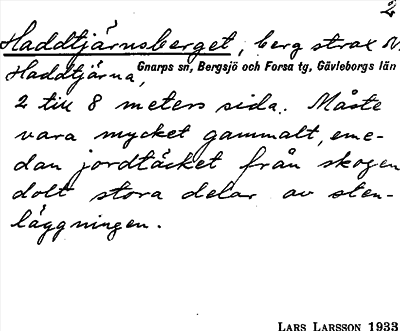 2
Haddtjärnsberget, berg strax N.
Haddtjärna,
Gnarps sn, Bergsjö och Forsa tg, Gävleborgs län
2 till 8 meters sida. Måste
vara mycket gammalt, eme-
dan jordtäcket från skogen
dolt stora delar av sten-
läggningen.
LARS LARSSON 1933